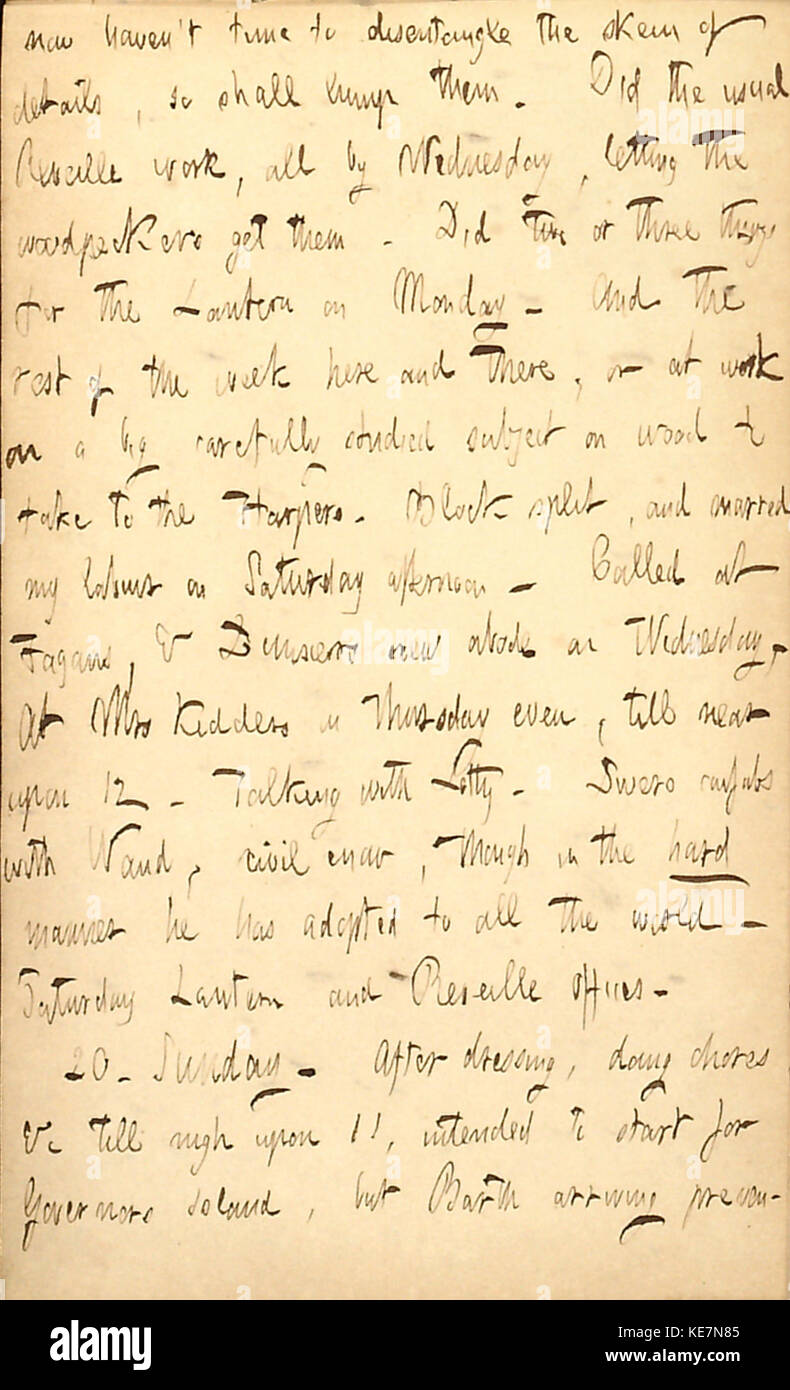 now haven't time to disentangle the skein of
details, so shall lump them. Did the usual
Reveille work, all by Wednesday, letting the
woodpeckers get them. Did two or three things
for the Lantern on Monday. And the
rest of the week here and there, or at work
on a big carefully studied subject on wood to
take to the Harpers. Block split, and marred
my labour on Saturday afternoon. Called at
Fagans, & Dunsiers new abode on Wednesday,
At Mrs Kidders on Thursday even, till near
upon 12. Talking with Lotty. Swers confabs
with Waud, civil enow, though in the hard
manner he has adopted to all the world.
Saturday Lantern and Reveille offices.
20. Sunday. After dressing, doing chores
&c till nigh upon 11, intended to start for
Governors Island, but Barth arriving preven-
alamy
alamy
Image ID: KE7N85
www.alamy.com